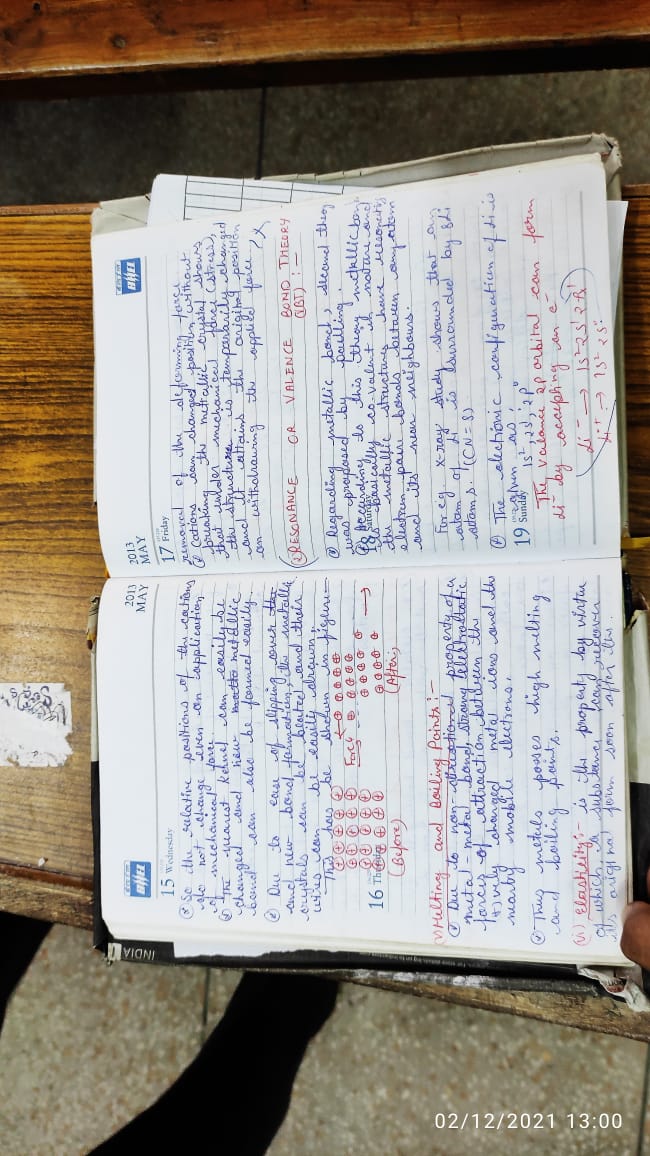 2013
MAY
15 Wednesday
So the relative positions of the cations
do not change even on application
of mechanical force.
The nearest kernel can easily be
changed and new metallic
bond can also be formed easily.
Due to ease of slipping over the
and new bond formation, the metallic
crystals can be beated and their
wires can be easily drawn.
This has be shown in figure—
Force
16
(Before)
(After)
(v) Melting and Boiling Points:—
Due to non-directional property of a
metal-metal bond, strong electrostatic
forces of attraction between the
+vely charged metal ions and the
nearby mobile electrons.
Thus metals posses high melting
and boiling points.
(vi) Elasticity:- is the property by virtue
of which a substance can recover
its original form soon after the
2013
MAY
17 Friday
removal of the deforming force
cations can changed position without
breaking the metallic crystal shows
that under mechanical force (stress),
the structure is temporarily changed
and it attains the original position
on withdrawing the applied force.
(2) RESONANCE OR VALENCE BOND THEORY
(VBT) :-
Regarding metallic bond, second theory
was proposed by paulling.
18 Saturday
According to this theory metallic bond
is basically co-valent in nature and
the metallic structures have resonating
electron pair bonds between any atom
and its near neighbours.
For eg x-ray study shows that an
atom of Li is surrounded by 8 Li
atoms. (CN = 8)
The electronic configuration of Li is
given as, 1s², 2s¹, 2p⁰
19 Sunday
The Valance 2p orbital can form
Li⁻ by accepting an e⁻
Li⁻ → 1s² 2s¹ 2p¹
INDIA
02/12/2021 13:00